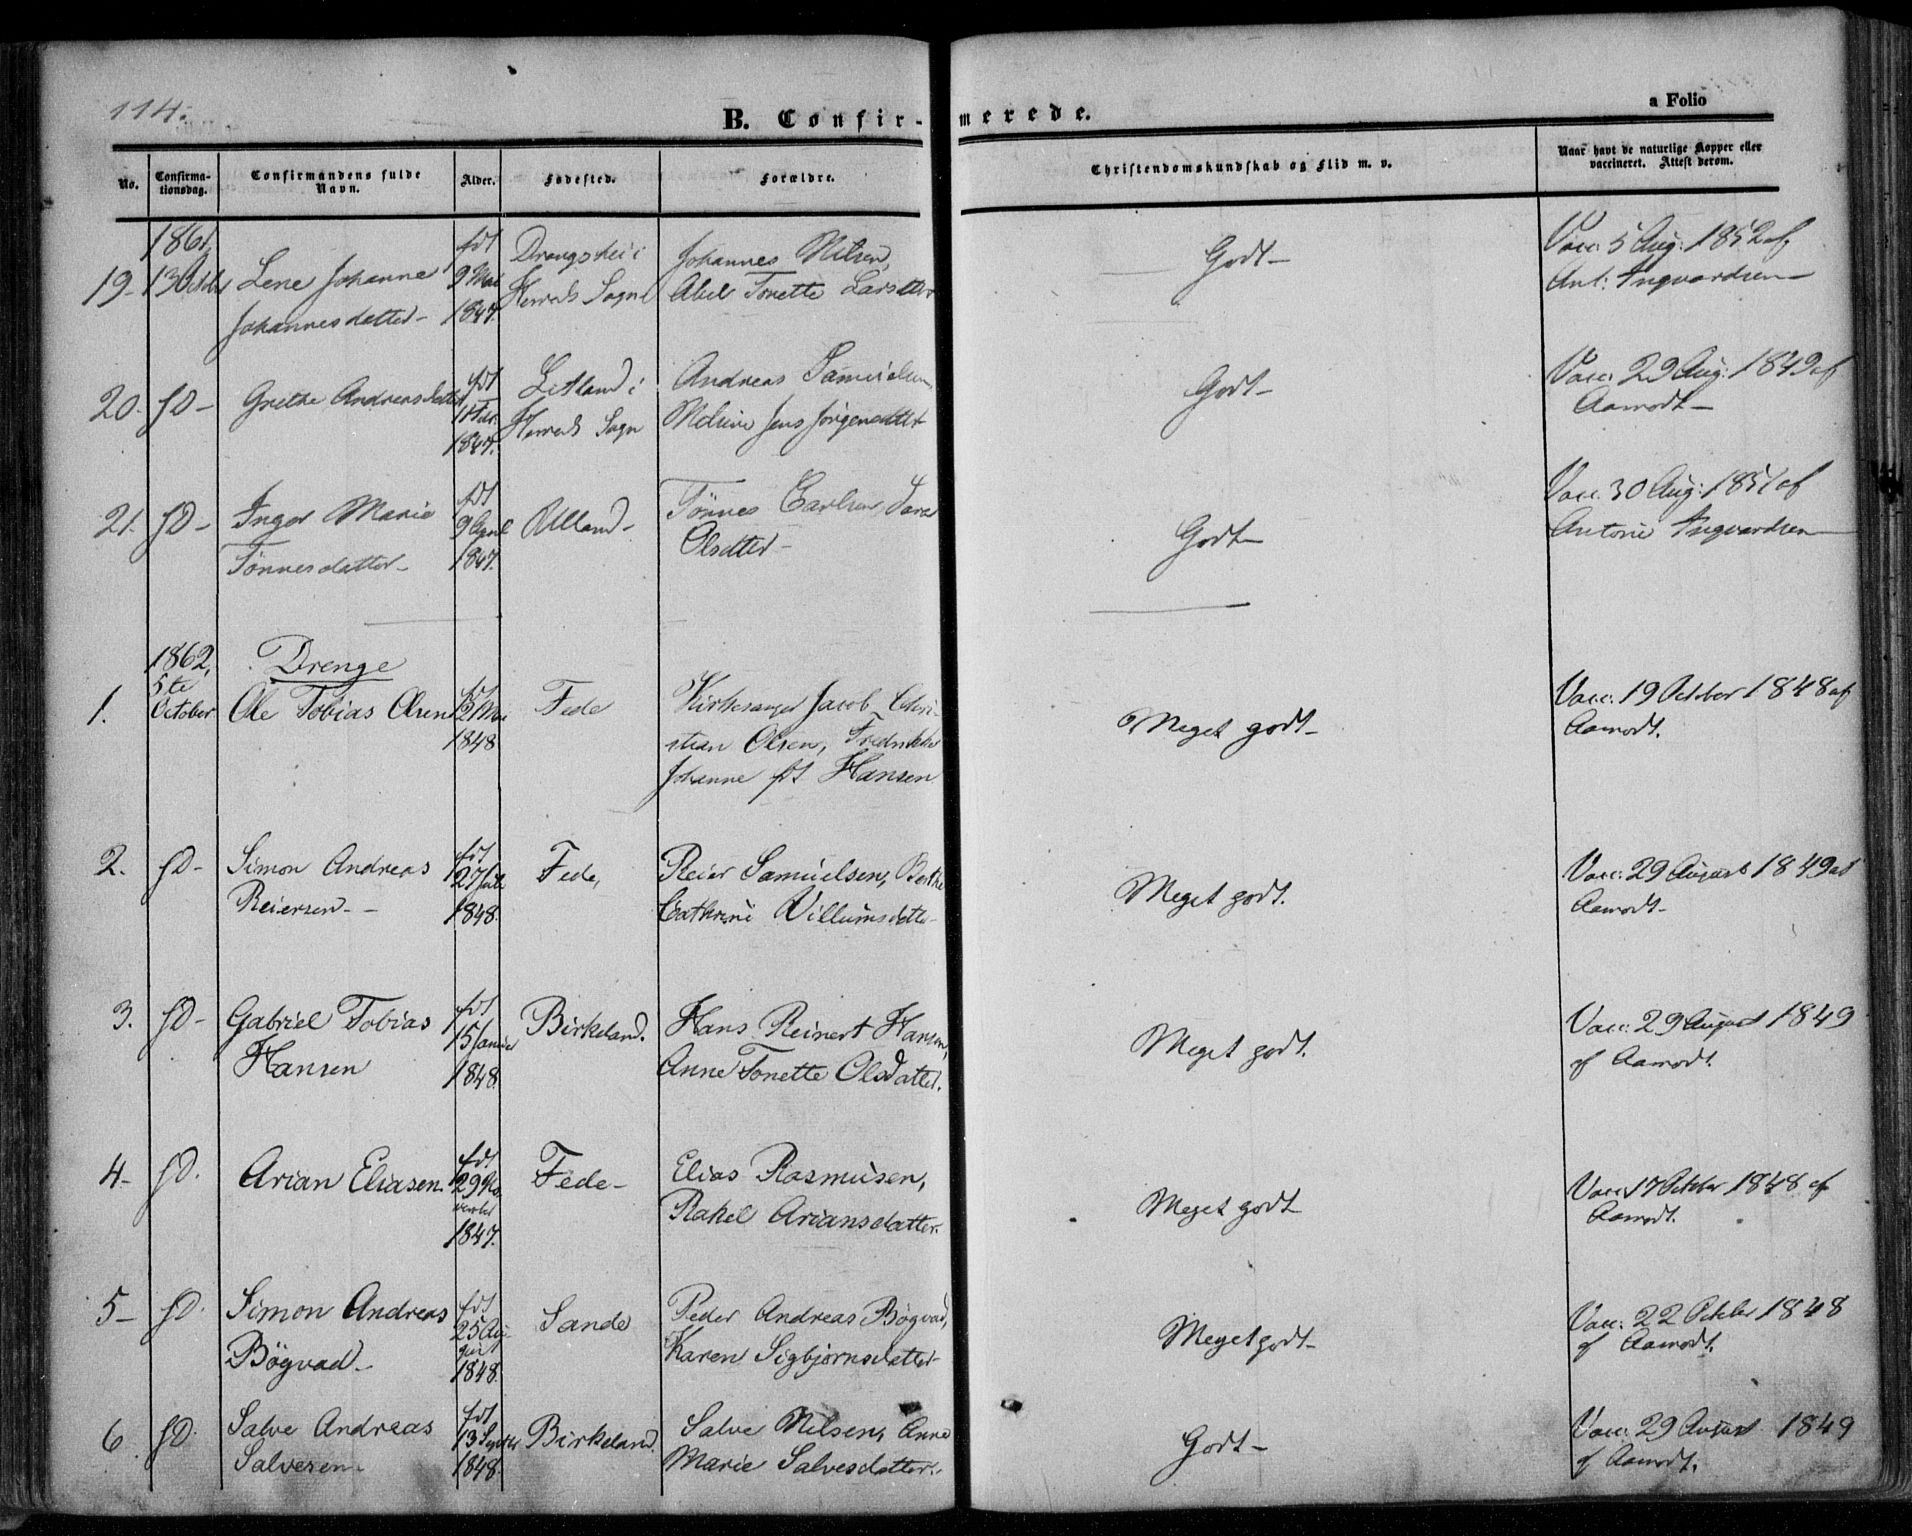 114.
B. Confirmerede.
a Folio
No.
Confirma-
tionsdag.
Confirmandens fulde
Navn.
Alder.
Fødested.
Forældre.
Christendomskundskab og Flid m. v.
Naar havt de naturlige Kopper eller
vaccineret. Attest derom.
1861,
19- 13 Octbr Lene Johanne fdt 9 Mai Drangshei i Johannes Nilsen, Godt- Vacc. 5 Aug: 1852 af
Johannesdatter- 1847. Herreds Sogn Abel Tonette Larsdtter Ant: Ingvardsen
20. fD- Grethe Andreasdatter fdt 11 Febr. Letland i Andreas Samuelsen, Godt- Vacc. 29 Aug: 1849 af
1847. Herreds Sogn Meline Jens Jörgensdtter Aamodt-
21. fD- Inger Marie fdt 9 April Ulland- Tönnes Carlsen, Sara Godt- Vacc. 30 Aug: 1851 af
Tönnesdatter- 1847. Olsdtter- Antoni Ingvardsen
1862, Drenge
1. 5te October Ole Tobias Olsen fdt 21 Mai 1848 Fede Kirkesanger Jacob Chri- Meget godt- Vacc. 19 October 1848 af
stian Olsen, Fredrikke Aamodt.
Johanne fdt Hansen
2. fD- Simon Andreas fdt 27 Juli Fede, Reier Samuelsen, Berthe Meget godt. Vacc. 29 August 1849 af
Reiersen- 1848. Cathrine Villumsdatter- Aamodt-
3. fD- Gabriel Tobias fdt 15 Januar Birkeland. Hans Reinert Hansen, Meget godt. Vacc. 29 August 1849
Hansen 1848. Anne Tonette Olsdatter. af Aamodt.
4- fD. Arian Eliasen. fdt 29 No- Fede- Elias Rasmusen, Meget godt Vacc. 17 October 1848 af
vember 1847. Rakel Ariansdatter. Aamodt.
5- fD. Simon Andreas fdt 25 Au- Sande Peder Andreas Bögvad, Meget godt- Vacc. 22 October 1848
Bögvad- gust 1848. Karen Sigbjørnsdatter- af Aamodt.
6 fD. Salve Andreas fdt 13 Septbr Birkeland. Salve Nilsen, Anne Godt- Vacc. 29 August 1849
Salvesen. 1848. Marie Salvesdatter. af Aamodt.